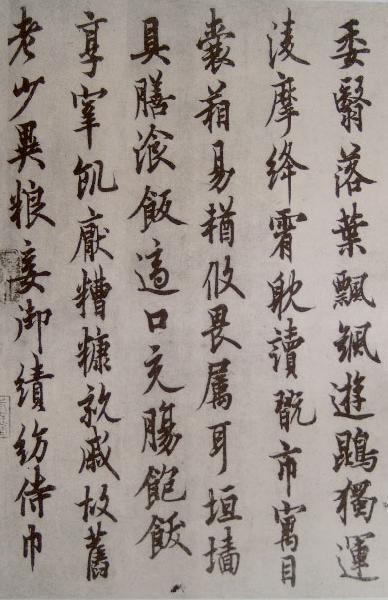 委翳落葉飄颻遊鵾獨運
淩摩絳霄耽讀翫市寓目
囊葙易輶攸畏屬耳垣墻
具膳湌飯適口充腸飽飫
享宰飢厭糟糠親戚故舊
老少異粮妾御績紡侍巾